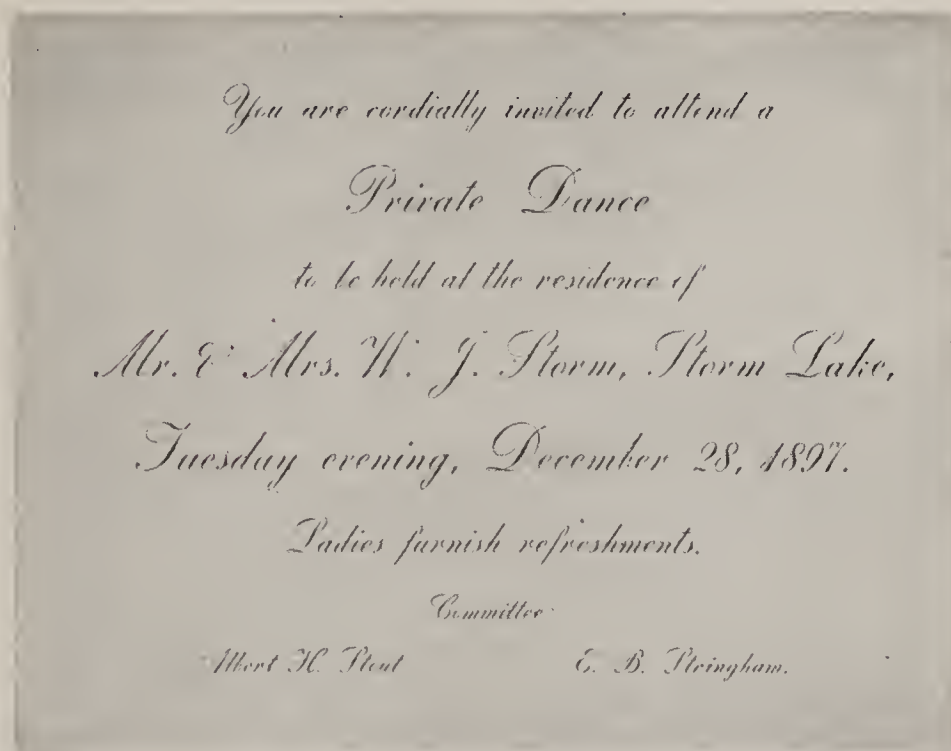 You are cordially invited to attend a
Private Dance
to be held at the residence of
Mr. & Mrs. W. J. Storm, Storm Lake,
Tuesday evening, December 28, 1897.
Ladies furnish refreshments.
Committee
Albert H. Stout E. B. Stringham.